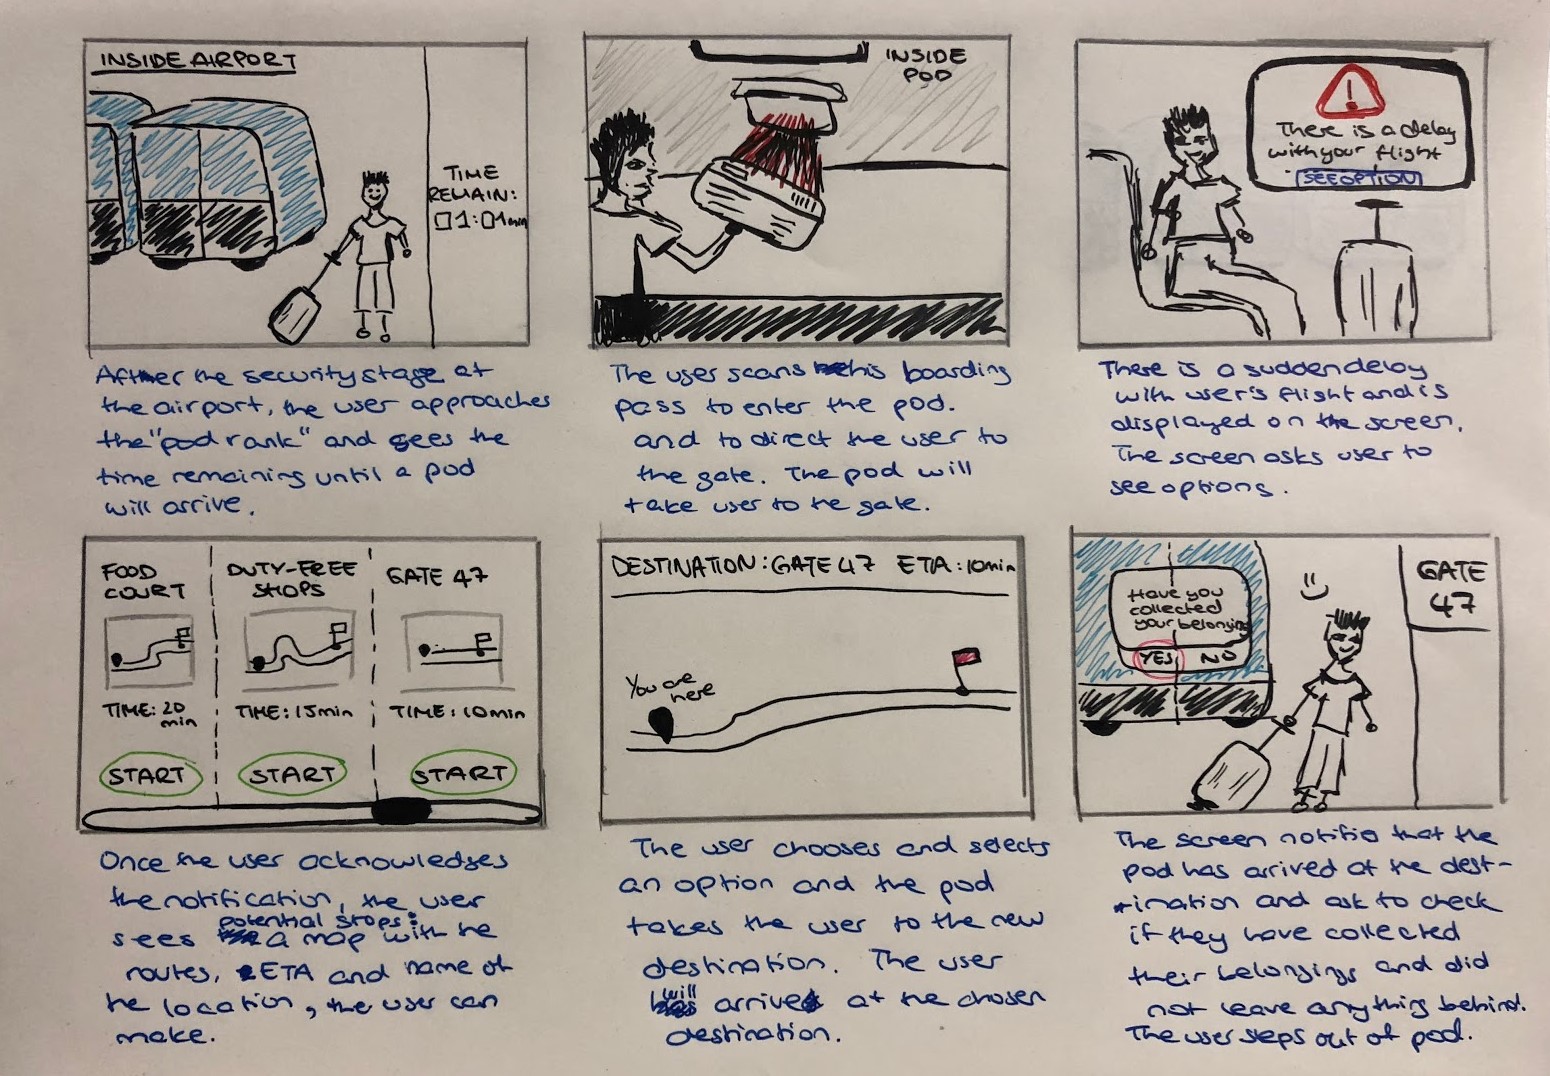 INSIDE AIRPORT
TIME
REMAIN:
01:01min
After the security stage at
the airport, the user approaches
the "pod rank" and sees the
time remaining until a pod
will arrive.
INSIDE
POD
The user scans his boarding
pass to enter the pod.
and to direct the user to
the gate. The pod will
take user to the gate.
There is a delay
with your flight
SEE OPTION
There is a sudden delay
with user's flight and is
displayed on the screen.
The screen asks user to
see options.
FOOD
COURT
TIME: 20
min
START
DUTY-FREE
SHOPS
TIME: 15min
START
GATE 47
TIME: 10min
START
Once the user acknowledges
the notification, the user
sees potential stops: a map with the
routes, ETA and name of
the location, the user can
make.
DESTINATION: GATE 47 ETA: 10min
You are
here
The user chooses and selects
an option and the pod
takes the user to the new
destination. The user
will arrive at the chosen
destination.
Have you
collected
your belonging
YES NO
GATE
47
The screen notifis that the
pod has arrived at the dest-
ination and ask to check
if they have collected
their belongings and did
not leave anything behind.
The user steps out of pod.